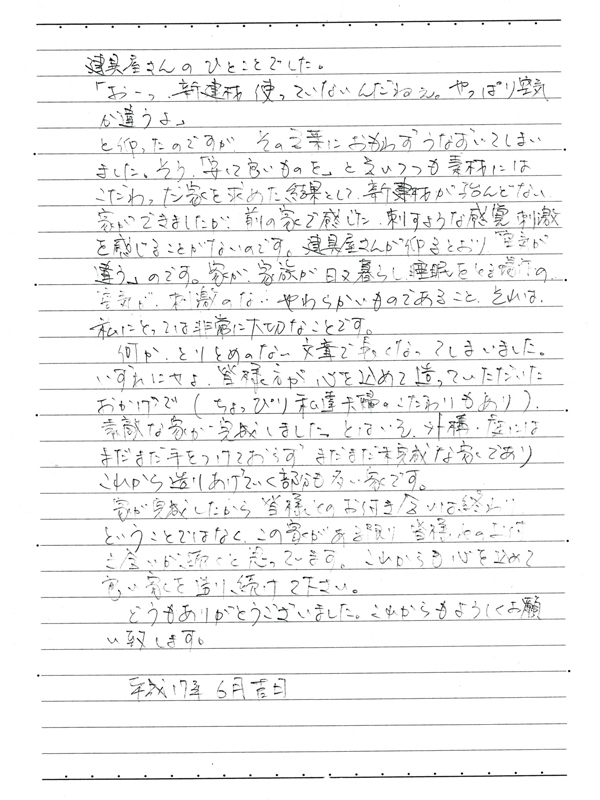 建具屋さんのひとことでした。
「おーっ、新建材使っていないんだねぇ。やっぱり空気
が違うよ」
と仰ったのですが、その言葉におもわずうなずいてしまい
ました。そう、「安くて良いものを」と言いつつも素材には
こだわった家を求めた結果として、新建材が殆んどない
家ができましたが、前の家で感じた、刺すような感覚、刺激
を感じることがないのです。建具屋さんが仰るとおり「空気が
違う」のです。家が、家族が日々暮らし、睡眠をとる場所の
空気が、刺激のない、やわらかいものであること、それは、
私にとっては非常に大切なことです。
何か、とりとめのない文章で長くなってしまいました。
いずれにせよ、皆様方が心を込めて造っていただいた
おかげで（ちょっぴり私達夫婦のこだわりもあり）、
素敵な家が完成しました。とはいえ、外構・庭には
まだまだ手をつけておらず、まだまだ未完成な家であり
これから造りあげていく部分も多い家です。
家が完成したから皆様とのお付き合いは終わり
ということではなく、この家がある限り皆様とのお付
き合いが続くと思っています。これからも心を込めて
良い家を造り続けて下さい。
どうもありがとうございました。これからもよろしくお願
い致します。
平成17年 6月吉日